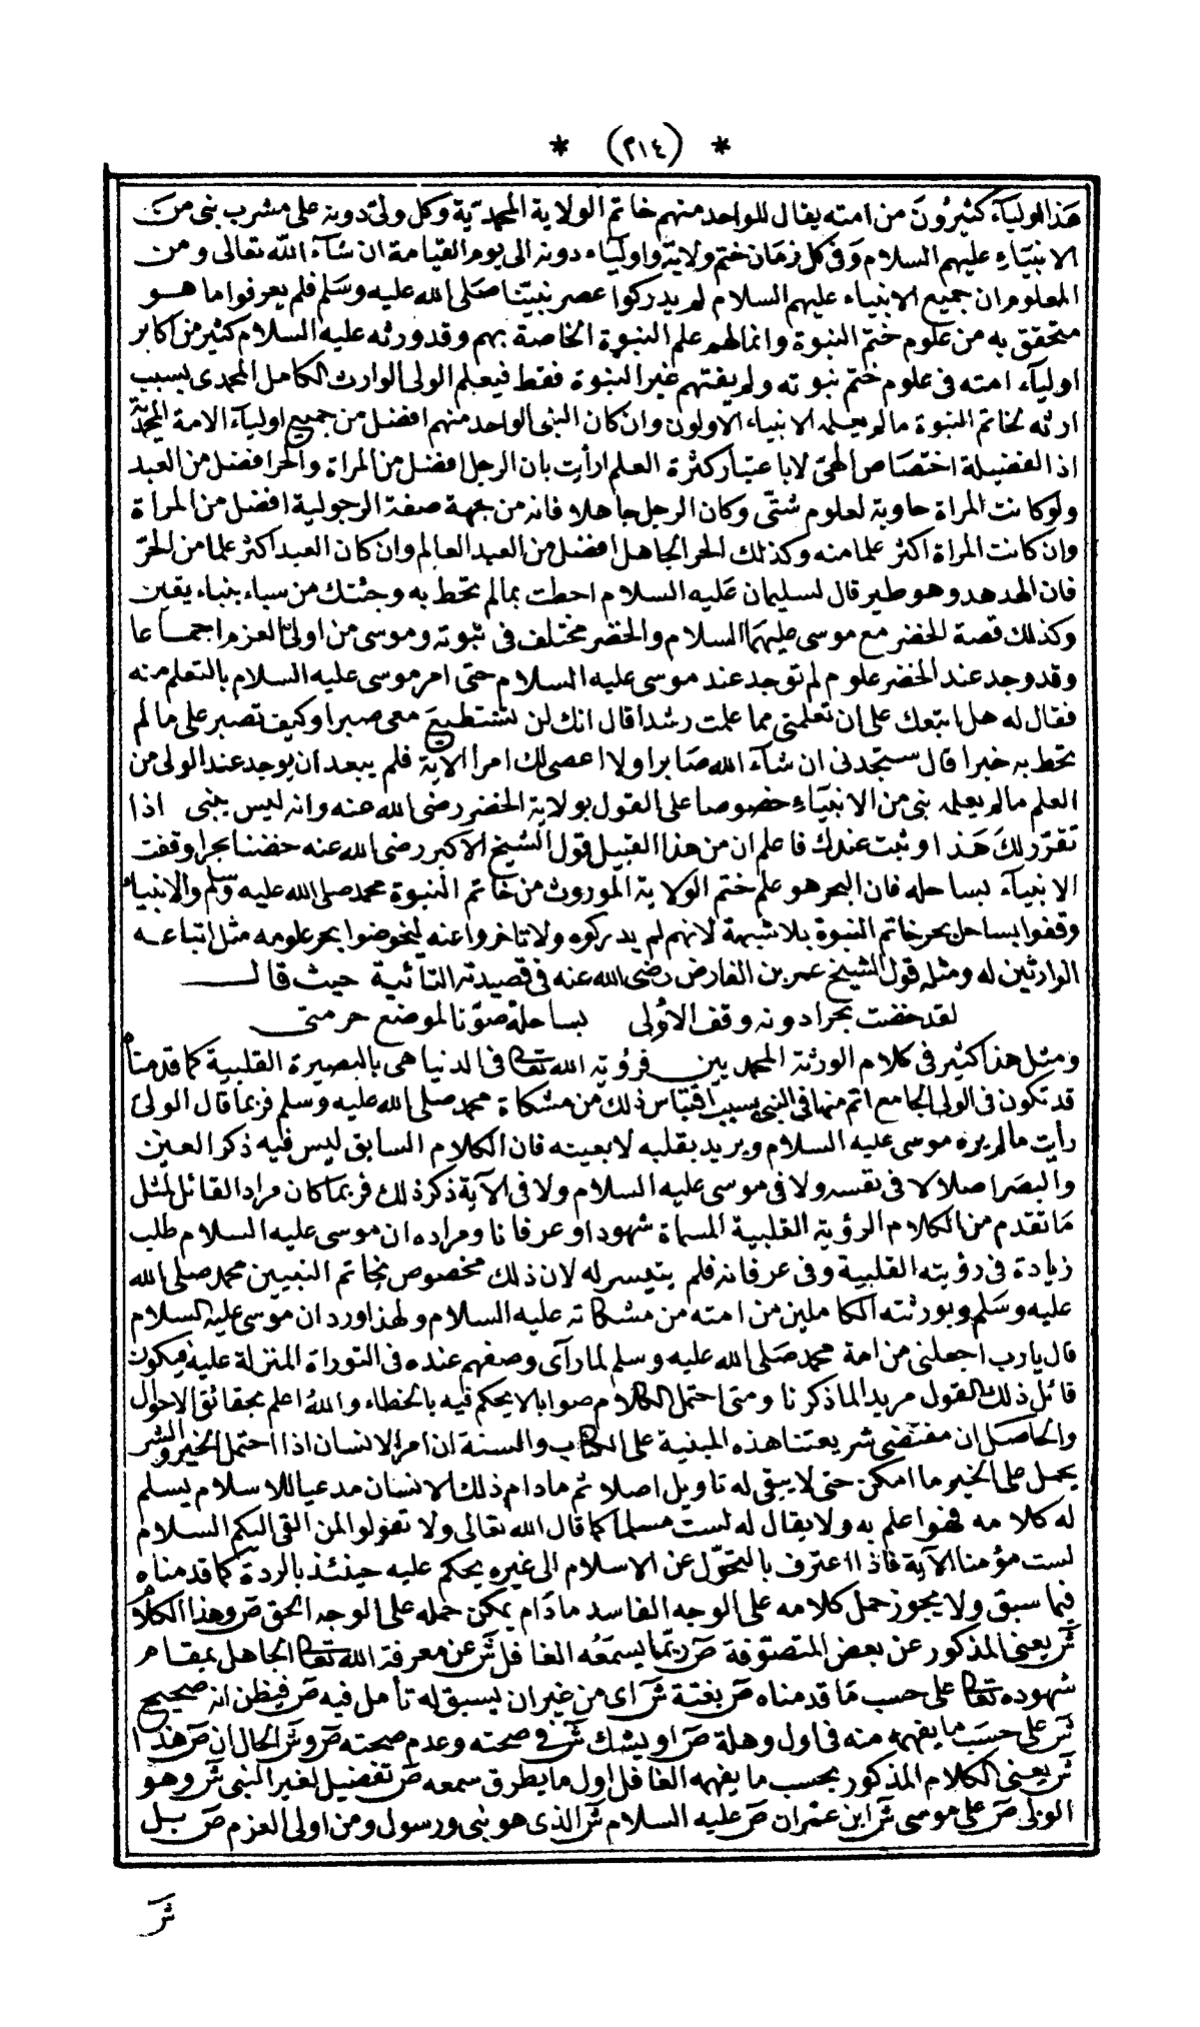 * (٢١٤) *
هذا اوليآء كثيرُونَ من امته يقال للواحد منهم خاتم الولاية المحمدية وكل ولىّ دونه على مشرب نبى من
الانبيَاءِ عليهم السلام وَفى كل زمَان ختم ولاية واوليآء دونه الى يوم القيامة ان شآء اللّه تعالى ومن
المعلوم ان جميع الانبياء عليهم السلام لم يدركوا عصر نبيّنا صَلى الله عليه وسَلم فلم يعرفوا ما هو
متحقق به من علوم ختم النبوة وانما لهم علم النبوة الخاصة بهم وقد ورثه عليه السلام كثير من اكابر
اوليآء امته فى علوم ختم نبوته ولم يفتهم غير النبوة فقط فيعلم الولى الوارث الكامل المحمدى بسبب
ارثه لخاتم النبوة مالم يعلمه الانبياء الاولون وان كان النبى الواحد منهم افضل من جميع اوليآء الامة المحمدية
اذ الفضيلة اختصَاص الهىّ لا باعتبار كثرة العلم ارأيت بان الرجل افضل من المراة والحر افضل من العبد
ولو كانت المراة حاوية لعلوم شتّى وكان الرجل جاهلا فانه من جهة صفة الرجولية افضل من المراة
وان كانت المراة اكثر علما منه وكذلك الحر الجاهل افضل من العبد العالم وان كان العبد اكثر علما من الحرّ
فان الهدهد وهو طير قال لسليمان عَليه السلام احطت بمالم تحط به وجئتك من سباء بنباء يقين
وكذلك قصة الخضر مع موسى عليهمَا السلام والخضر مختلف فى نبوته وموسى من اولى العزم اجماعا
وقد وجد عند الخضر علوم لم توجد عند موسى عليه السلام حتى امر موسى عليه السلام بالتعلم منه
فقال له هل اتبعك على ان تعلمنى مما علمت رشدا قال انك لن تستطيع معى صبرا وكيف تصبر على مالم
تحط به خبرا قال ستجدنى ان شآء الله صَابرا ولا اعصى لك امرا الآية فلم يبعد ان يوجد عند الولى من
العلم مالم يعلمه نبى من الانبيَآءِ خصوصا على القول بولاية الخضر رضى الله عنه وانه ليس بنبى اذا
تقرّر لكَ هَذا وثبت عندك فاعلم ان من هذا القبيل قول الشيخ الاكبر رضى الله عنه خضنا بحرا وقفت
الانبيآء بساحله فان البحر هو علم ختم الولاية الموروث من خاتم النبوة محمد صلى الله عليه وسلم والانبياء
وقفوا بساحل بحر خاتم النبوة بلا شبهة لانهم لم يدركوه ولا تاخروا عنه ليخوضوا بحر علومه مثل اتباعه
الوارثين له ومثله قول الشيخ عمر بن الفارض رضى الله عنه فى قصيدته التائية حيث قال
لقد خضت بحرا دونه وقف الأولى بساحله صوّنا لموضع حرمتى
ومثل هذا كثير فى كلام الورثة المحمديين فرؤية الله تعالى فى الدنيا هى بالبصيرة القلبية كما قدمناه
قد تكون فى الولى الجامع اتم منها فى النبى بسبب اقتباس ذلك من مشكاة محمد صلى الله عليه وسلم فربما قال الولىّ
رأيت مالم يره موسى عليه السلام ويريد بقلبه لا بعينه فان الكلام السابق ليس فيه ذكر العين
والبصَر اصلا لا فى نفسه ولا فى موسى عليه السلام ولا فى الآية ذكر ذلك فربما كان مراد القائل لمثل
مَا تقدم من الكلام الرؤية القلبية المسماة شهودا وعرفانا ومراده ان موسى عليه السلام طلب
زيادة فى رؤيته القلبية وفى عرفانه فلم يتيسر له لان ذلك مخصوص بخاتم النبيين محمد صلى الله
عليه وسَلم وبورثته الكاملين من امته من مشكاته عليه السلام ولهذا ورد ان موسى عليه السلام
قال يارب اجعلنى من امة محمد صَلى الله عليه وسلم لما رآى وصفهم عنده فى التوراة المنزلة عليه فيكون
قائل ذلك القول مريدا لما ذكرنا ومتى احتمل الكلام صوابا لا يحكم فيه بالخطاء والله اعلم بحقائق الاحوال
والحاصل ان مقتضى شريعتنا هذه المبنية على الكتاب والسنة ان امر الانسان اذا احتمل الخير والشر
يحمل على الخير ما امكن حتى لا يبقى له تاويل اصلا ثم مادام ذلك الانسان مدعيا للاسلام يسلم
له كلامه فهو اعلم به ولا يقال له لست مسلما كما قال الله تعالى ولا تقولوا لمن القى اليكم السلام
لست مؤمنا الآية فاذا اعترف بالتحوّل عن الاسلام الى غيره يحكم عليه حينئذ بالردة كما قدمناه
فيما سبق ولا يجوز حمل كلامه على الوجه الفاسد مادَام يمكن حمله على الوجه الحق صَ وهذا الكلام
شَ يعنى المذكور عن بعض المتصوّفة صَ ربّما يسمَعُه الغافل شَ عن معرفة الله تعالى الجاهل بمقام
شهوده تعالى على حسب مَا قدمناه صَ بغتة شَ اى من غير ان يسبق له تأمل فيه صَ فيظن انه صحيح
شَ على حسَب ما يفهمه منه فى اول وهلة صَ او يشك شَ فى صحته وعدم صحته صَ وشَ الحال ان صَ هذا
شَ يعنى الكلام المذكور بحسب ما يفهمه الغافل اول ما يطرق سمعه صَ تفضيل لغير النبى شَ وهو
الولى صَ على موسى شَ ابن عمران صَ عليه السلام شَ الذى هو نبى ورسول ومن اولى العزم صَ بل
شَ